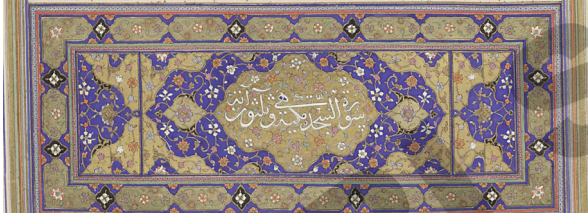 سورة السجدة مكية وهي ثلثون آية